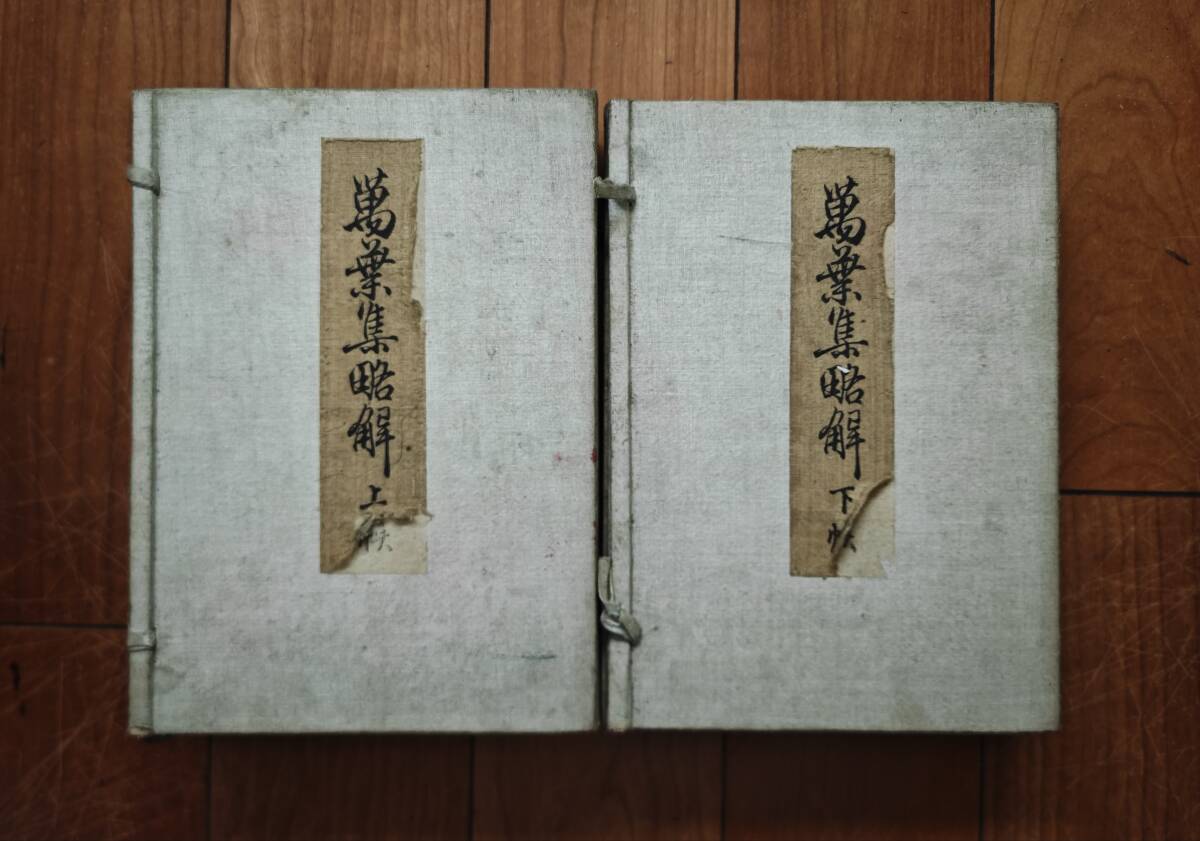 萬葉集略解 上帙
萬葉集略解 下帙